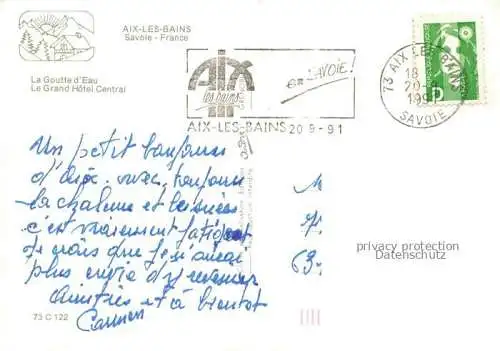 AIX-LES-BAINS
Savoie - France
La Goutte d'Eau
Le Grand Hôtel Central
AIX
les bains
en SAVOIE!
AIX-LES-BAINS 20-9-91
73 AIX LES BAINS
18
20-
1991
SAVOIE
Un petit bonjour
d'Aix avec toujours
la chaleur et
c'est vraiment fatigant
je crois que je n'aurai
plus envie d'y revenir
Amitiés et à bientôt
Carmen
M
7.
69.
privacy protection
Datenschutz
73 C 122